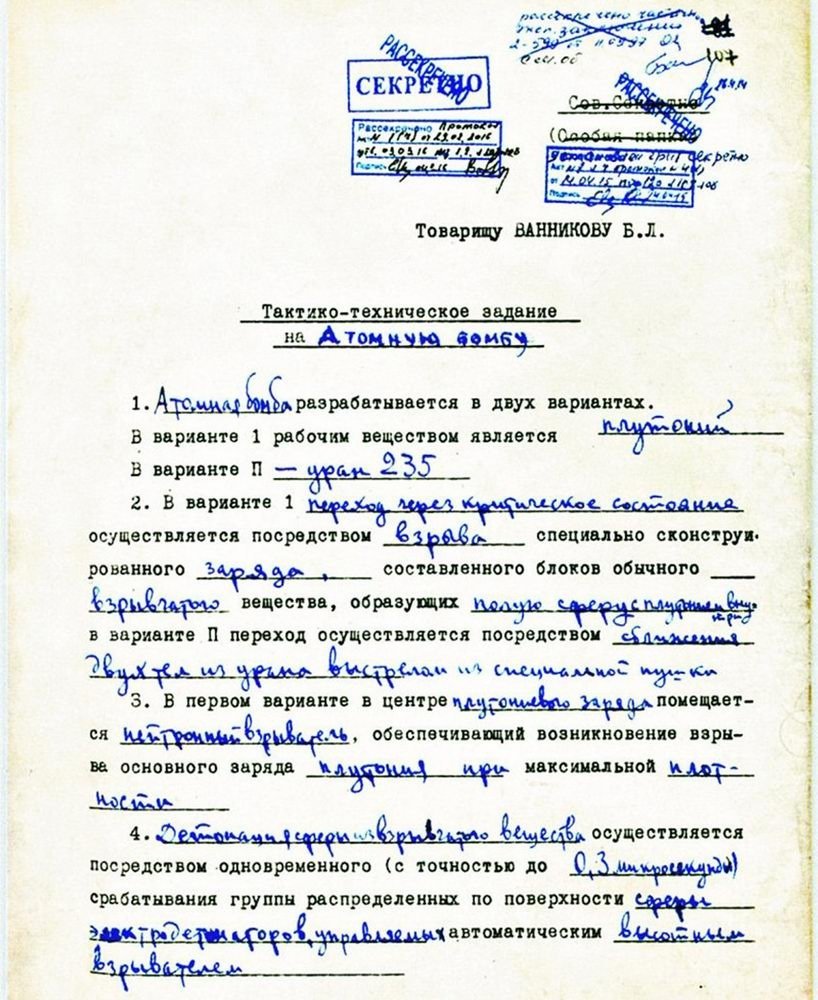 рассекречено частично
107
РАССЕКРЕЧЕНО
СЕКРЕТНО
РАССЕКРЕЧЕНО
Сов.Секретно
Рассекречено Протокол
(Особая папка)
Подпись
Товарищу ВАННИКОВУ Б.Л.
Тактико-техническое задание
на Атомную бомбу
1. Атомная бомба разрабатывается в двух вариантах.
В варианте 1 рабочим веществом является плутоний
В варианте П — уран 235
2. В варианте 1 переход через критическое состояние
осуществляется посредством взрыва специально сконструи-
рованного заряда, составленного блоков обычного
взрывчатого вещества, образующих полую сферу с плутонием внутри
в варианте П переход осуществляется посредством сближения
двух тел из урана выстрелом из специальной пушки
3. В первом варианте в центре плутониевого заряда помещает-
ся нейтронный взрыватель, обеспечивающий возникновение взры-
ва основного заряда плутония при максимальной плот-
ности
4. Детонация сферы из взрывчатого вещества осуществляется
посредством одновременного (с точностью до 0,3 микросекунды)
срабатывания группы распределенных по поверхности сферы
электродетонаторов, управляемых автоматическим высотным
взрывателем